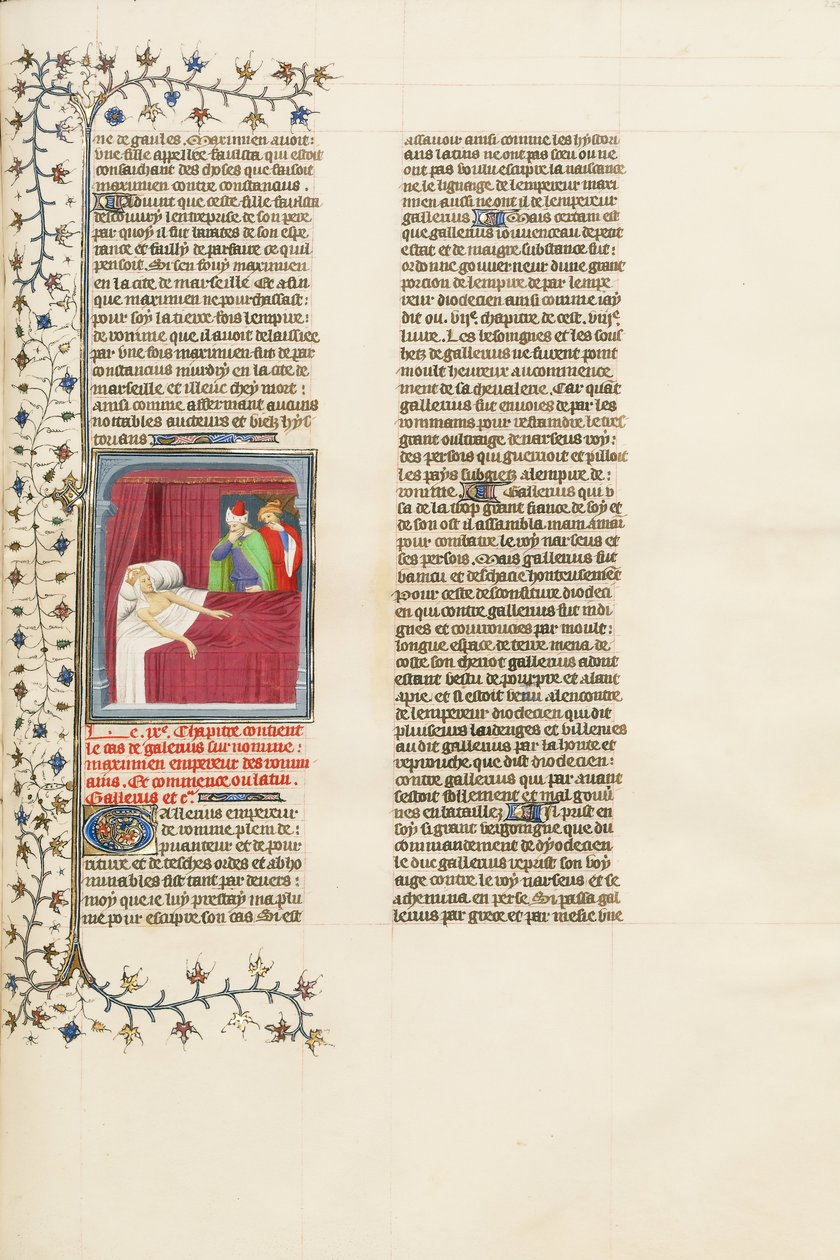 ne de gaules. Maximien auoit:
vne fille appellee fausta qui estoit
consachant des choses que faisoit
maximien contre constancius.
Et aduint que ceste fille fausta
descouury lentreprise de son pere
par quoy il fut taratez de son espe
rance et failly de parfaire ce quil
pensoit. Si sen fouy maximien
en la cite de marseille Et afin
que maximien ne pourchassast:
pour soy la tierce fois lempire:
de romme que il auoit delaissiee
par vne fois maximien fut de par
constancius murdry en la cite de
marseille et illeuc chey mort:
ainsi comme afferment aucuns
nottables aucteurs et vielz hys
torians
Le .ixe. Chapitre contient
le cas de galerius surnomme:
maximien empereur des romm
ains. Et commence ou latin.
Gallerius et c.
Gallerius empereur
de romme plein de:
puanteur et de pour
riture et de tesches ordes et abho
minables fist tant par deuers:
moy que ie luy prestay ma plu
me pour escripre son cas Si est
assauoir ainsi comme les hystori
ans latins ne ont pas sceu ou ne
ont pas voulu escripre la naissance
ne le lignaige de lempereur maxi
mien aussi ne ont il de lempereur
gallerius Mais certain est
que gallerius iouuenceau de petit
estat et de maigre substance fut:
ordonne gouuerneur dune grant
porcion de lempire de par lempe
reur dioclecien ainsi comme iay
dit ou. viie. chapitre de cest. viiie.
liure. Les besoingnes et les sou
hetz de gallerius ne furent point
moult heureux au commence
ment de sa cheualerie. Car quant
gallerius fut enuoiez de par les
rommains pour restraindre le tres
grant oultraige de narseus roy:
des persois qui guerrioit et pilloit
les pays subgietz a lempire de:
romme. Gallerius qui v
sa de la trop grant fiance de soy et
de son ost il assembla main a mai
pour combatre le roy narseus et
ses persois. Mais gallerius fut
vaincu et deschacie honteusement
Pour ceste desconfiture dioclecj
en qui contre gallerius fut indi
gnes et courrouciez par moult:
longue espace de terre mena de
coste son chariot gallerius adont
estant vestu de pourpre et alant
a pie et si estoit venu alencontre
de lempereur dioclecien qui dit
pluiseurs laidenges et villenies
au dit gallerius par la honte et
reprouche que dist dioclecien:
contre gallerius qui par auant
sestoit follement et mal gouuer
nes en bataillez Il prist en
soy si grant vergoingne que du
commandement de dyoclecien
le duc gallerius reprist son voy
aige contre le roy narseus et se
achemina en perse. Si passa gal
lerius par grece et par mesie vne